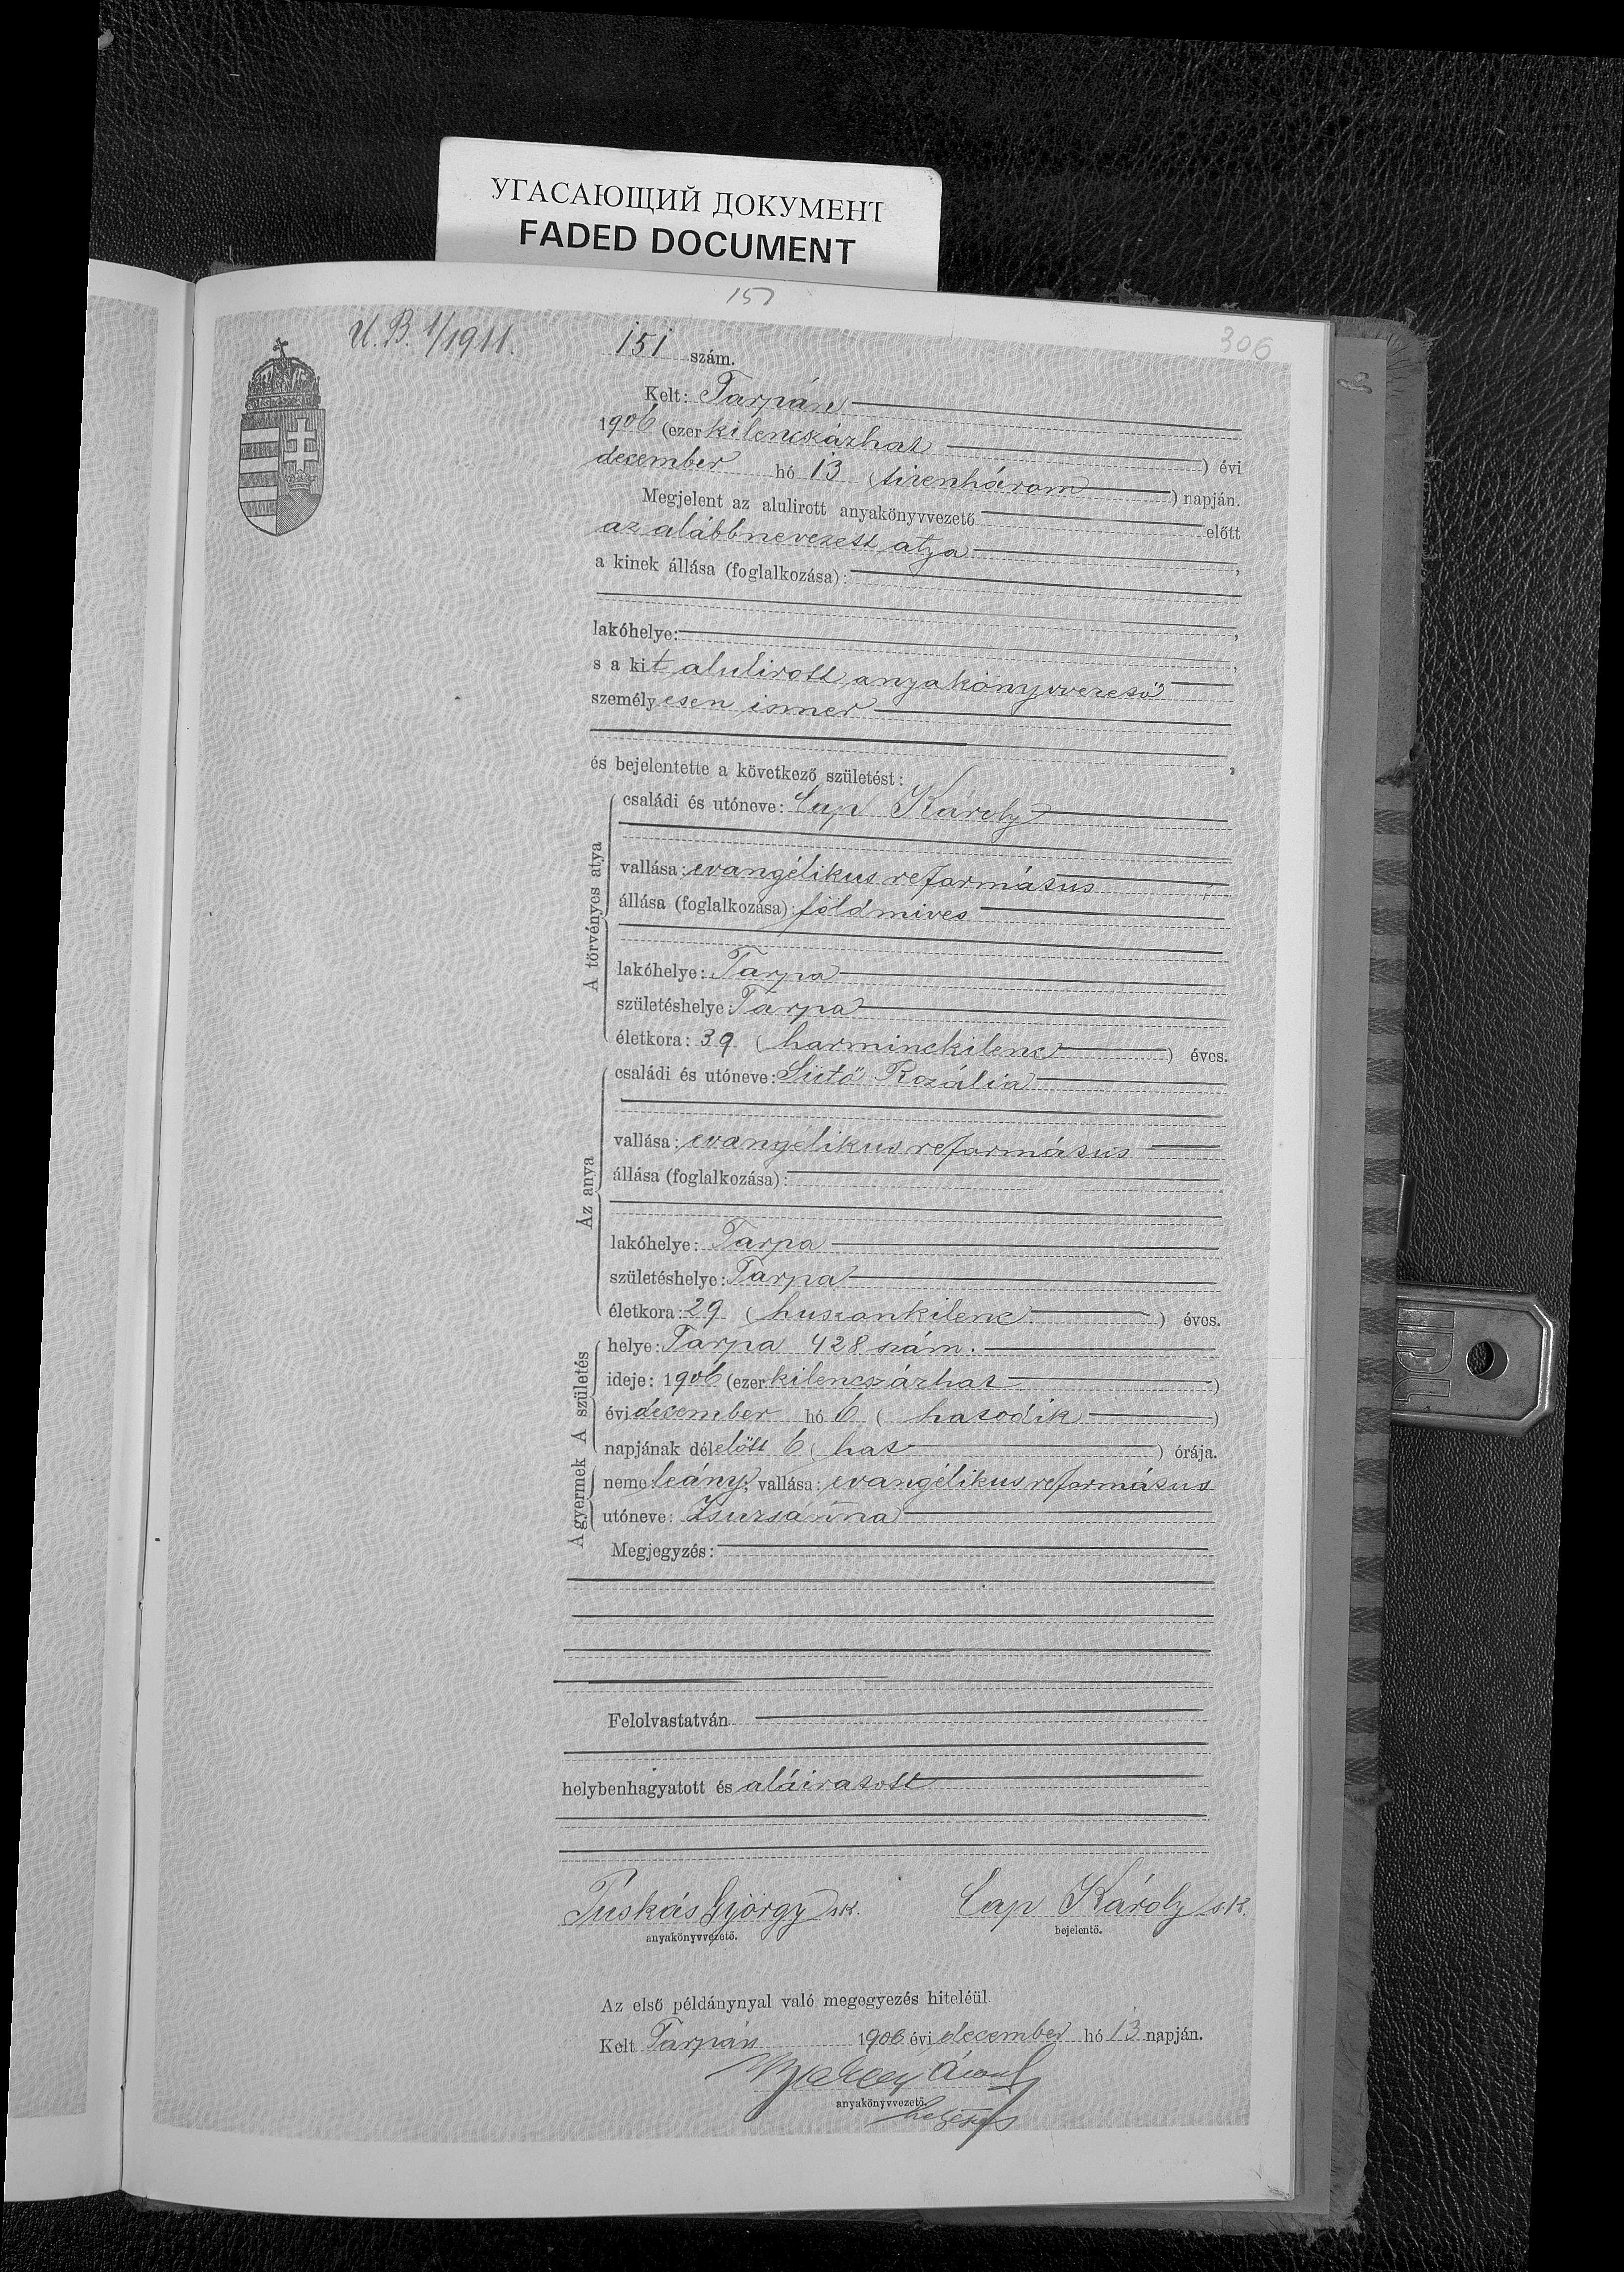 УГАСАЮЩИЙ ДОКУМЕНТ
FADED DOCUMENT
151
306
U. B. 1/1911.
151 szám.
Kelt: Tarpán
1906 (ezer kilencszázhat) évi
december hó 13 (tizenhárom) napján.
Megjelent az alulirott anyakönyvvezető előtt
az alábbnevezett atya,
a kinek állása (foglalkozása):
lakóhelye:
s a kit alulirott anyakönyvvezető
személyesen ismer
és bejelentette a következő születést:
A törvényes atya
családi és utóneve: Cap Károly
vallása: evangélikus református
állása (foglalkozása): földmives
lakóhelye: Tarpa
születéshelye: Tarpa
életkora: 39 (harminckilenc) éves.
Az anya
családi és utóneve: Sütő Rozália
vallása: evangélikus református
állása (foglalkozása):
lakóhelye: Tarpa
születéshelye: Tarpa
életkora: 29 (huszonkilenc) éves.
A születés
helye: Tarpa 428 szám.
ideje: 1906 (ezer kilencszázhat)
évi december hó 6 (hatodik)
napjának délelőtt 6 (hat) órája.
A gyermek
neme leány; vallása: evangélikus református
utóneve: Zsuzsánna
Megjegyzés:
Felolvastatván
helybenhagyatott és aláiratott
Puskás György s.k. Cap Károly s.k.
anyakönyvvezető. bejelentő.
Az első példánynyal való megegyezés hiteléül.
Kelt Tarpán 1906 évi december hó 13 napján.
anyakönyvvezető.
helyettes